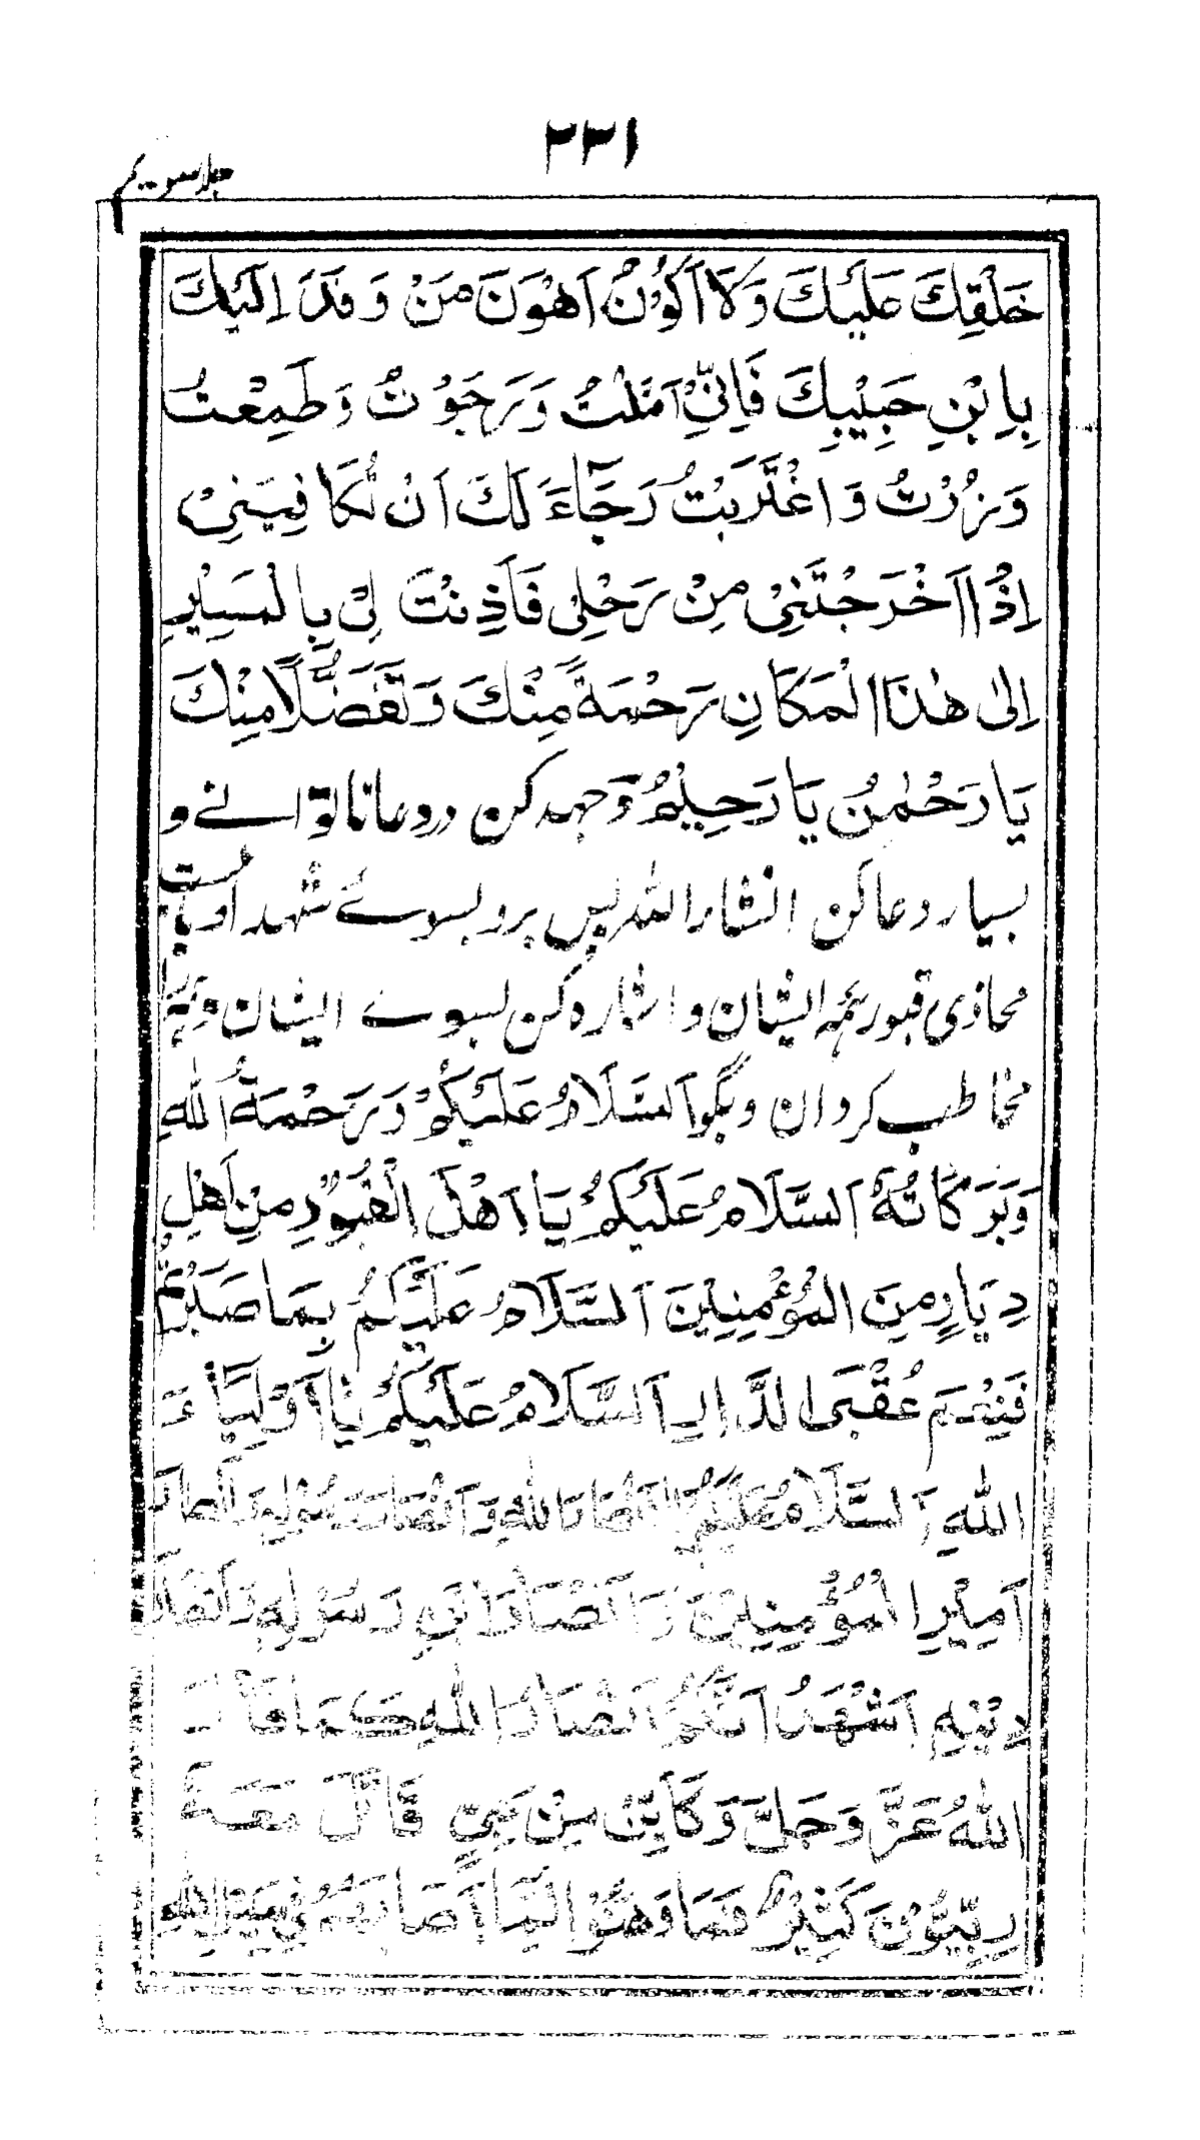 ۲۲۱
جلد سویم
خَلْقِكَ عَلَيْكَ وَلَا اَكُوْنُ اَهْوَنَ مَنْ وَفَدَ اِلَيْكَ
بِاِبْنِ حَبِيْبِكَ فَاِنِّيْ اَمَّلْتُ وَرَجَوْتُ وَطَمِعْتُ
وَزُرْتُ وَاغْتَرَبْتُ رَجَآءَ لَكَ اَنْ تُكَافِيَنِيْ
اِذْ اَخْرَجْتَنِيْ مِنْ رَحْلِيْ فَاَذِنْتَ لِيْ بِالْمَسِيْرِ
اِلٰى هٰذَا الْمَكَانِ رَحْمَةً مِنْكَ وَتَفَضُّلًا مِنْكَ
يَا رَحْمٰنُ يَا رَحِيْمُ و جهد کن در دعا تا توانے و
بسیار دعا کن انشاء اللہ پس برو بسوے شہدا و بایست
محاذی قبور ہمہ ایشان و اشارہ کن بسوے ایشان و ہمہ را
مخاطب گردان و بگو اَلسَّلَامُ عَلَيْكُمْ وَرَحْمَةُ اللهِ
وَبَرَكَاتُهُ اَلسَّلَامُ عَلَيْكُمْ يَا اَهْلَ الْقُبُوْرِ مِنْ اَهْلِ
دِيَارٍ مِنَ الْمُؤْمِنِيْنَ اَلسَّلَامُ عَلَيْكُمْ بِمَا صَبَرْتُمْ
فَنِعْمَ عُقْبَى الدَّارِ اَلسَّلَامُ عَلَيْكُمْ يَا اَوْلِيَاءَ
اللهِ اَلسَّلَامُ عَلَيْكُمْ يَا اَنْصَارَ اللهِ وَاَنْصَارَ رَسُوْلِهِ وَاَنْصَارَ
اَمِيْرِ الْمُؤْمِنِيْنَ وَاَنْصَارَ ابْنِ رَسُوْلِهِ وَاَنْصَارَ
دِيْنِهِ اَشْهَدُ اَنَّكُمْ اَنْصَارُ اللهِ كَمَا قَالَ
اللهُ عَزَّ وَجَلَّ وَكَاَيِّنْ مِنْ نَبِيٍّ قَاتَلَ مَعَهُ
رِبِّيُّوْنَ كَثِيْرٌ فَمَا وَهَنُوْا لِمَا اَصَابَهُمْ فِيْ سَبِيْلِ اللهِ